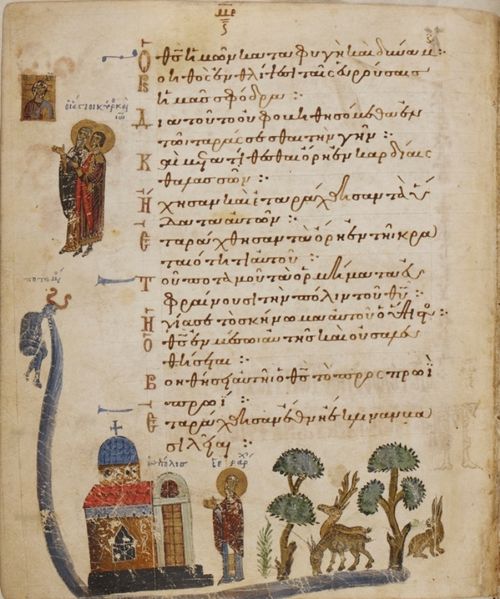 Ὁ θς ἡμῶν καταφυγὴ καὶ δύναμ
Βοηθὸς ἐν θλίψεσι ταῖς εὑρούσαις
ἡμᾶς σφόδρα:
Διὰ τοῦτο οὐ φοβηθησόμεθα ἐν
τῶ ταράσσεσθαι τὴν γῆν
Καὶ μετατίθεσθαι ὄρη ἐν καρδίαις
θαλασσῶν:
Ἤχησαν καὶ ἐταράχθησαν τὰ ὕ
δατα αὐτῶν:
Ἐταράχθησαν τὰ ὄρη ἐν τῆ κρα
ταιότητι αὐτοῦ:
Τοῦ ποταμοῦ τὰ ὁρμήματα εὐ
φραίνουσι τὴν πόλιν τοῦ θυ
Ἡγίασε τὸ σκήνωμα αὐτοῦ ὁ
Ὁ θς ἐν μέσω αὐτῆς καὶ οὐ σαλευ
θήσεται:
Βοηθήσει αὐτῆ ὁ θς τὸ πρὸς πρωῒ
πρωΐ:
Ἐταράχθησαν ἔθνη ἔκλιναν βα
σιλεῖαι:
ἡ πόλις